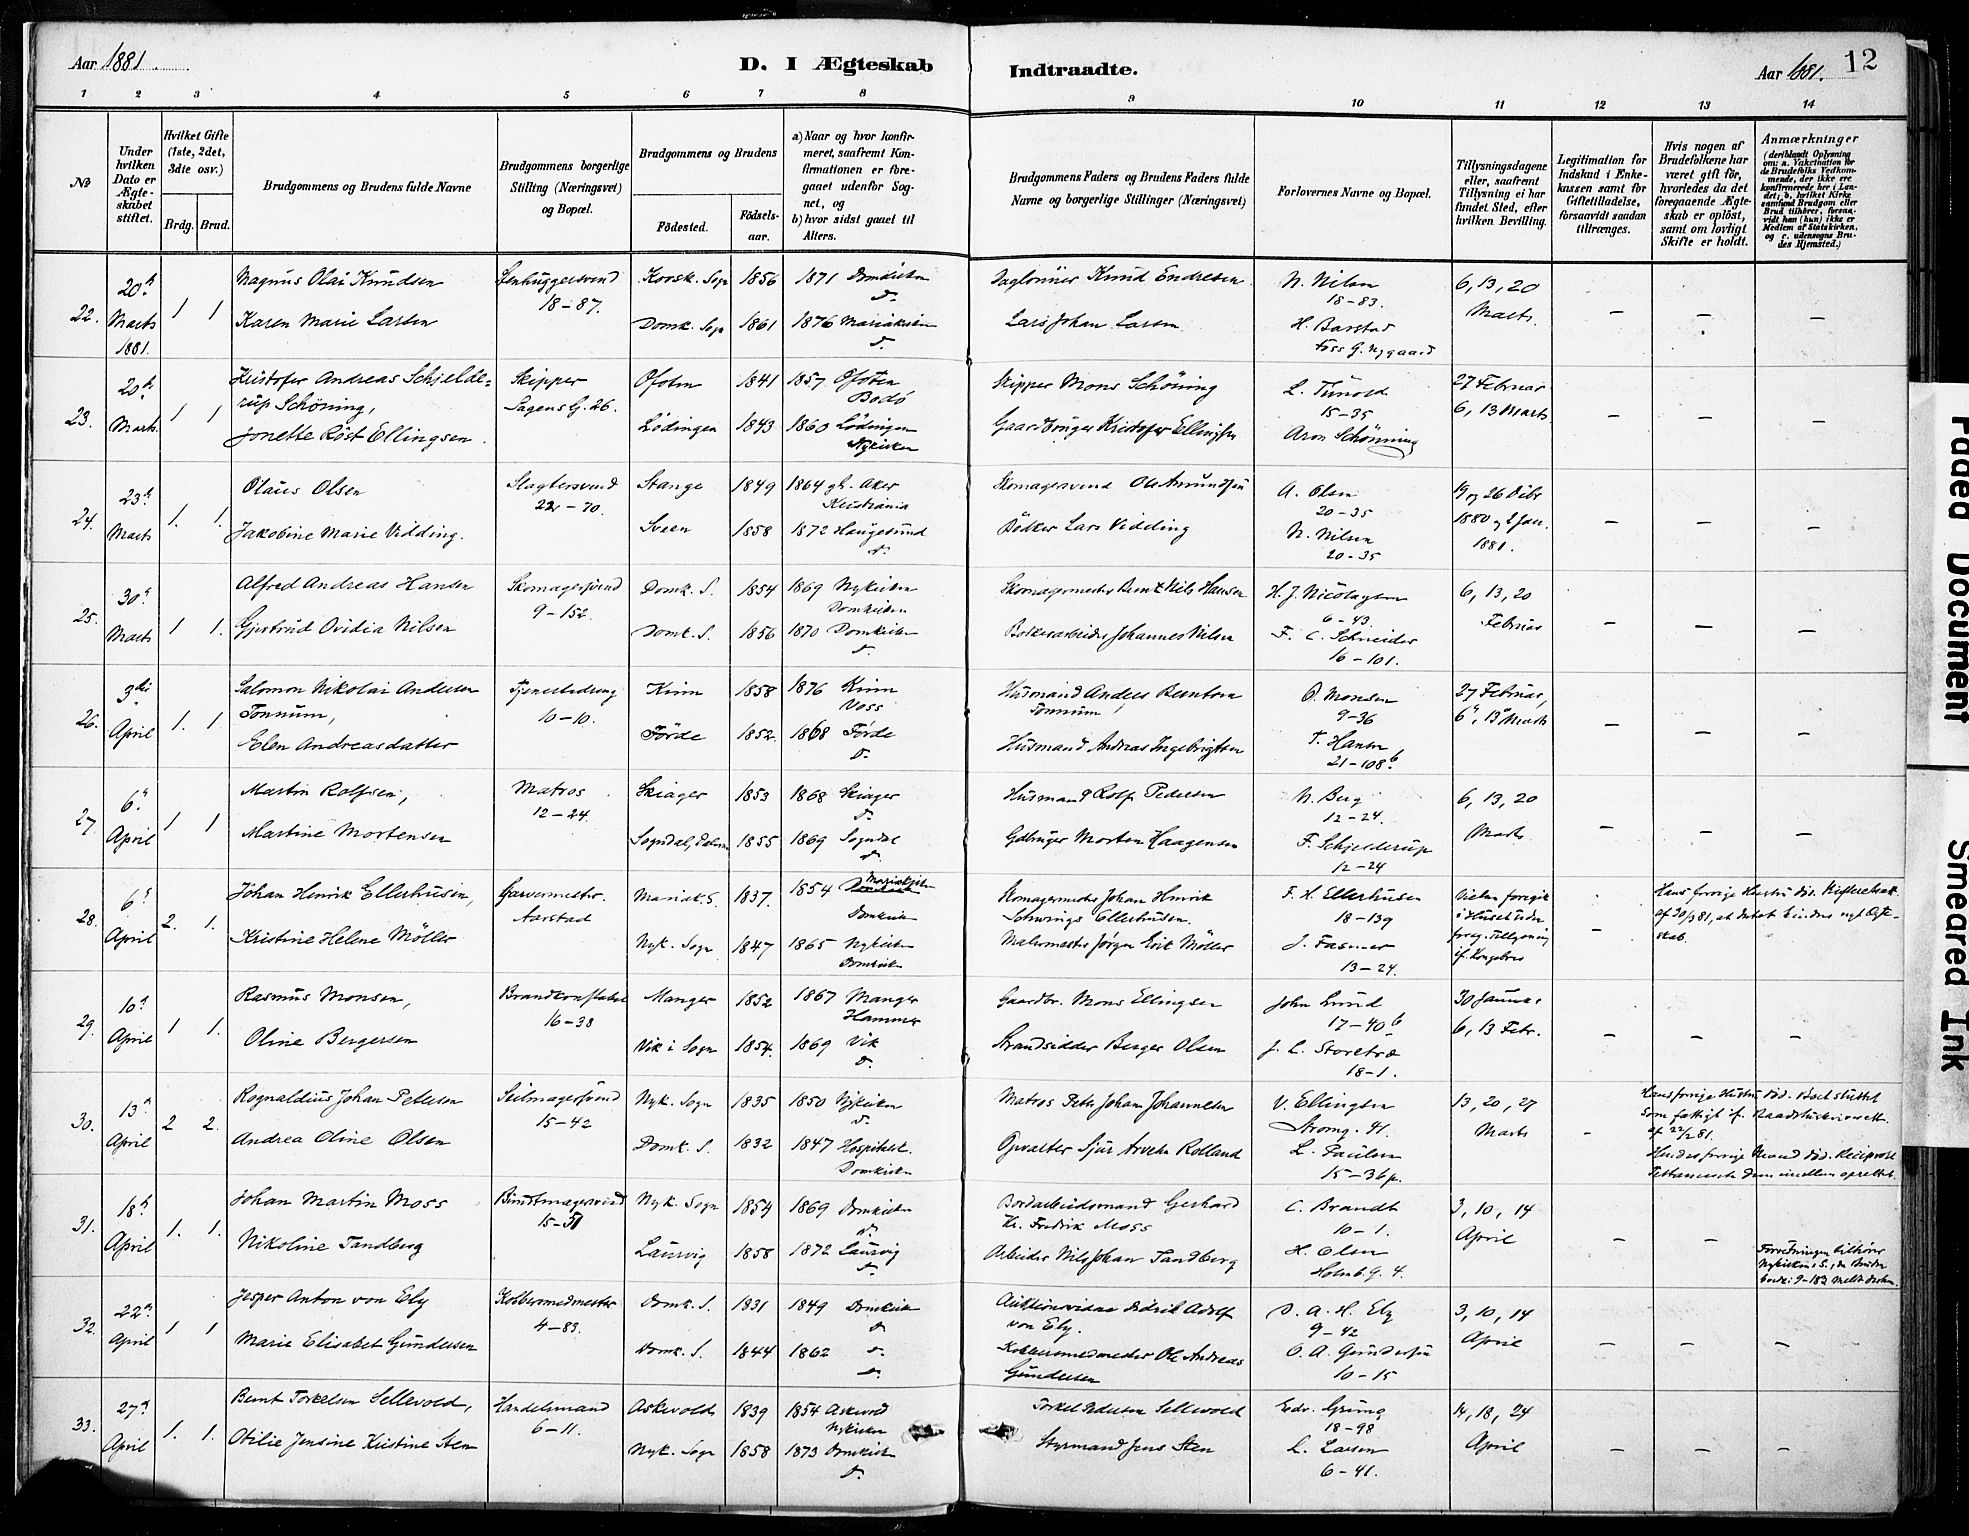 Aar 1881.
D. I Ægteskab Indtraadte.
Aar 1881. 12
1 2 3 4 5 6 7 8 9 10 11 12 13 14
No
Under hvilken Dato er Ægteskabet stiftet.
Hvilket Gifte (1ste, 2det, 3die osv.)
Brdg. Brud.
Brudgommens og Brudens fulde Navne
Brudgommens borgerlige Stilling (Næringsvei) og Bopæl.
Brudgommens og Brudens
Födested. Födselsaar.
a) Naar og hvor konfirmeret, saafremt Konfirmationen er foregaaet udenfor Sognet, og
b) hvor sidst gaaet til Alters.
Brudgommens Faders og Brudens Faders fulde Navne og borgerlige Stillinger (Næringsvei)
Forlovernes Navne og Bopæl.
Tillysningsdagene eller, saafremt Tillysning ei har fundet Sted, efter hvilken Bevilling.
Legitimation for Indskud i Enkekassen samt for Giftetilladelse, forsaavidt saadan tiltrænges.
Hvis nogen af Brudefolkene har været gift för, hvorledes da det foregaaende Ægteskab er oplöst, samt om lovligt Skifte er holdt.
Anmærkninger
(deriblandt Oplysning om: a. Vakcination for de Brudefolks Vedkommende, der ikke ere konfirmerede her i Landet; b. hvilket Kirkesamfund Brudgom eller Brud tilhörer, forsaavidt han (hun) ikke er Medlem af Statskirken, og c. udensogns Brudes Hjemsted.)
22. 20de Marts 1881. 1 1
Magnus Olai Knudsen
Karen Marie Larsen
18-87.
Korsk. Sogn 1856 1871 Domkirken d.
Domk. Sogn 1861 1876 Mariakirken d.
Daglönner Knud Endresen
Lars Johan Larsen
N. Nilsen 18-83.
H. Barstad Foss G. Nygaard
6, 13, 20 Marts
23. 20de Marts 1 1
Kristofer Andreas Schjelderup Schöning,
Jonette Röst Ellingsen
Skipper Sagens G. 26.
Ofoten 1841 1857 Ofoten Bodö
Lödingen 1843 1860 Lödingen Nykirken
Skipper Mons Schöning
Gaardbruger Kristofer Ellingsen
15-35
Aron Schönning
27 Februar 6, 13 Marts
24. 23de Marts 1. 1.
Olaus Olsen
Jakobine Marie Vidding.
Slagtersvend 22-70.
Stange 1849 1864 gl. Aker Kristiania
Sveen 1858 1872 Haugesund d.
Skomagersvend Ole Amundsen
Bödker Lars Vidding
A. Olsen 20-35
N. Nilsen 20-35
19 og 26 Decbr 1880 og 2 Jan. 1881.
25. 30te Marts 1 1.
Alfred Andreas Hansen
Gjertrud Ovidia Nilsen
Skomagersvend 9-152.
Domk. S. 1854 1869 Nykirken Domkirken
Domk. S. 1856 1870 Domkirken d.
Skomagermester Bernt Nils Hansen
Johannes Nilsen
H. J. Nicolaysen 6-43.
F. C. Schneider 16-101.
6, 13, 20 Februar
26. 3die April 1. 1.
Salomon Nikolai Andersen Tonnum,
Elen Andreasdatter
Tjenestedreng 10-10.
Kinn 1858 1876 Kinn Voss
Förde 1852. 1868 Förde d.
Husmand Anders Berntsen Tonnum
Husmand Andreas Ingebrigtsen
O. Monsen 9-36
T. Hansen, 21-108b.
27 Februar, 6, 13 Marts
27. 6te April 1 1
Martin Rolfsen,
Martine Mortensen
Matros 12-24.
Skiager 1853 1868 Skiager d.
Sogndal, Dalerne 1855 1869 Sogndal d.
Husmand Rolf Pedersen
Gdbruger Morten Haagensen
N. Berg 12-24.
F. Schjelderup 12-24
6, 13, 20 Marts
28. 6te April 2. 1.
Johan Henrik Ellerhusen,
Kristine Helene Möller
Garvermester. Aarstad
Mariak. S. 1837. 1854 Mariakirken Domkirken
Nyk. Sogn 1847 1865 Nykirken Domkirken
Skomagermester Johan Henrik Ellerhusen.
Malermester Jörgen Erik Möller
F. H. Ellerhusen 18-139
J. Fasmer 13-24.
Vielsen foregik i Huset uden foreg. Tillysning if. Kongebrev
Hans forrige Hustru död. Skifteretsatt. af 30/3 81, at Intet hindrer nyt Ægteskab.
29. 10de April 1 1.
Rasmus Monsen,
Oline Bergersen
Brandkonstabel 16-38
Manger 1852 1867 Manger Hammer
Vik i Sogn 1854. 1869 Vik d.
Gaardbr. Mons Ellingsen
Strandsidder Berger Olsen
John Lund 17-40b
J. L. Storetvæ 18-1.
30 Januar 6, 13 Febr.
30. 13de April 2 2.
Rognaldius Johan Petersen
Andrea Oline Olsen
Seilmagersvend 15-42
Nyk. Sogn 1835 1850 Nykirken d.
Domk. S. 1832 1847 Hospitalet. Domkirken
Matros Peter Johan Johannesen
Opvarter Sjur Arvesen Rolland
V. Ellingsen Stromg. 41.
L. Paulsen 15-36p.
13, 20, 27 Marts
Hans forrige Hustru död. Boet sluttet som fattigt if. Raadstueskriveratt. af 22/2 81.
Hendes forrige Mand död. Reciprokt Testamente dem imellem oprettet.
31. 18de April 1. 1.
Johan Martin Moss
Nikoline Tandberg
Buntmagersvend 15-51
Nyk. Sogn 1854 1869 Domkirken d.
Laurvig 1858 1872 Laurvig d.
Bordarbeidsmand Gerhard Kr. Fredrik Moss
Arbeider Nils Johan Tandberg
C. Brandt 10-1.
H. Olsen Holmb. G. 4.
3, 10, 14 April
Forretningen tilhörer Nykirkens S.
32. 22de April 1 1
Jesper Anton von Ely
Marie Elisabet Gundersen
Kobbersmedmester 4-83.
Domk. S. 1831 1849 Domkirken d.
Domk. S. 1844 1862 d. d.
Auktionsvidne Didrik Adolf von Ely.
Kobbersmedmester Ole Andreas Gundersen
D. A. H. Ely 9-42
O. A. Gundersen 10-15
3, 10, 14 April
33. 27de April 1. 1.
Bernt Torkelsen Sellevold,
Otilie Jensine Kristine Sten
Handelsmand 6-11.
Askevold 1839 1854 Askevold Nykirken
Nyk. Sogn 1858 1873 Domkirken d.
Torkel Pedersen Sellevold
Styrmand Jens Sten
Edv. Grung 18-98
L. Larsen 6-41.
14, 18, 24 April
Faded Document
Smeared Ink